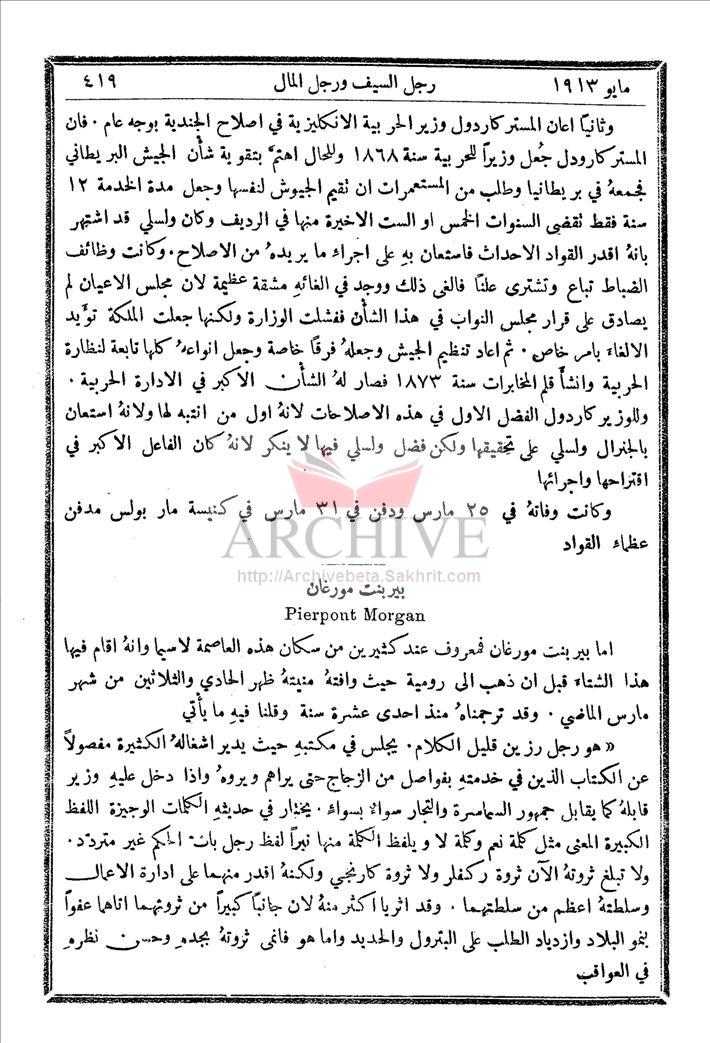 مايو ١٩١٣
رجل السيف ورجل المال
٤١٩
وثانياً اعان المستر كاردول وزير الحربية الانكليزية في اصلاح الجندية بوجه عام ٠ فان
المستر كارودل جُعل وزيراً للحربية سنة ١٨٦٨ وللحال اهتمَّ بتقوية شأن الجيش البريطاني
فجمعهُ في بريطانيا وطلب من المستعمرات ان تقيم الجيوش لنفسها وجعل مدة الخدمة ١٢
سنة فقط تقضى السنوات الخمس او الست الاخيرة منها في الرديف وكان ولسلي قد اشتهر
بانهُ اقدر القواد الاحداث فاستعان بهِ على اجراء ما يريدهُ من الاصلاح ٠ وكانت وظائف
الضباط تباع وتشترى علناً فالغى ذلك ووجد في الغائهِ مشقة عظيمة لان مجلس الاعيان لم
يصادق على قرار مجلس النواب في هذا الشأن ففشلت الوزارة ولكنها جعلت الملكة تؤيد
الالغاء بامر خاص ٠ ثم اعاد تنظيم الجيش وجعلهُ فرقاً خاصة وجعل انواعهُ كلها تابعة لنظارة
الحربية وانشأ قلم المخابرات سنة ١٨٧٣ فصار لهُ الشأن الاكبر في الادارة الحربية ٠
وللوزير كاردول الفضل الاول في هذه الاصلاحات لانهُ اول من انتبه لها ولانهُ استعان
بالجنرال ولسلي على تحقيقها ولكن فضل ولسلي فيها لا ينكر لانهُ كان الفاعل الاكبر في
اقتراحها واجرائها
وكانت وفاتهُ في ٢٥ مارس ودفن في ٣١ مارس في كنيسة مار بولس مدفن
عظماء القواد
ARCHIVE
http://Archivebeta.Sakhrit.com
بيربنت مورغان
Pierpont Morgan
اما بيربنت مورغان فمعروف عند كثيرين من سكان هذه العاصمة لاسيما وانهُ اقام فيها
هذا الشتاء قبل ان ذهب الى رومية حيث وافتهُ منيتهُ ظهر الحادي والثلاثين من شهر
مارس الماضي ٠ وقد ترجمناهُ منذ احدى عشرة سنة وقلنا فيهِ ما يأتي
« هو رجل رزين قليل الكلام ٠ يجلس في مكتبهِ حيث يدير اشغالهُ الكثيرة مفصولاً
عن الكتاب الذين في خدمتهِ بفواصل من الزجاج حتى يراهم ويروهُ واذا دخل عليهِ وزير
قابلهُ كما يقابل جمهور السماسرة والتجار سواء بسواء ٠ يختار في حديثهِ الكلمات الوجيزة اللفظ
الكبيرة المعنى مثل كلمة نعم وكلمة لا ويلفظ الكلمة منها نبراً لفظ رجل بات الحكم غير متردد ٠
ولا تبلغ ثروتهُ الآن ثروة ركفلر ولا ثروة كارنجي ولكنهُ اقدر منهما على ادارة الاعمال
وسلطتهُ اعظم من سلطتهما ٠ وقد اثريا اكثر منهُ لان جانباً كبيراً من ثروتهما اتاهما عفواً
بنمو البلاد وازدياد الطلب على البترول والحديد واما هو فانمى ثروتهُ بجدهِ وحسن نظرهِ
في العواقب